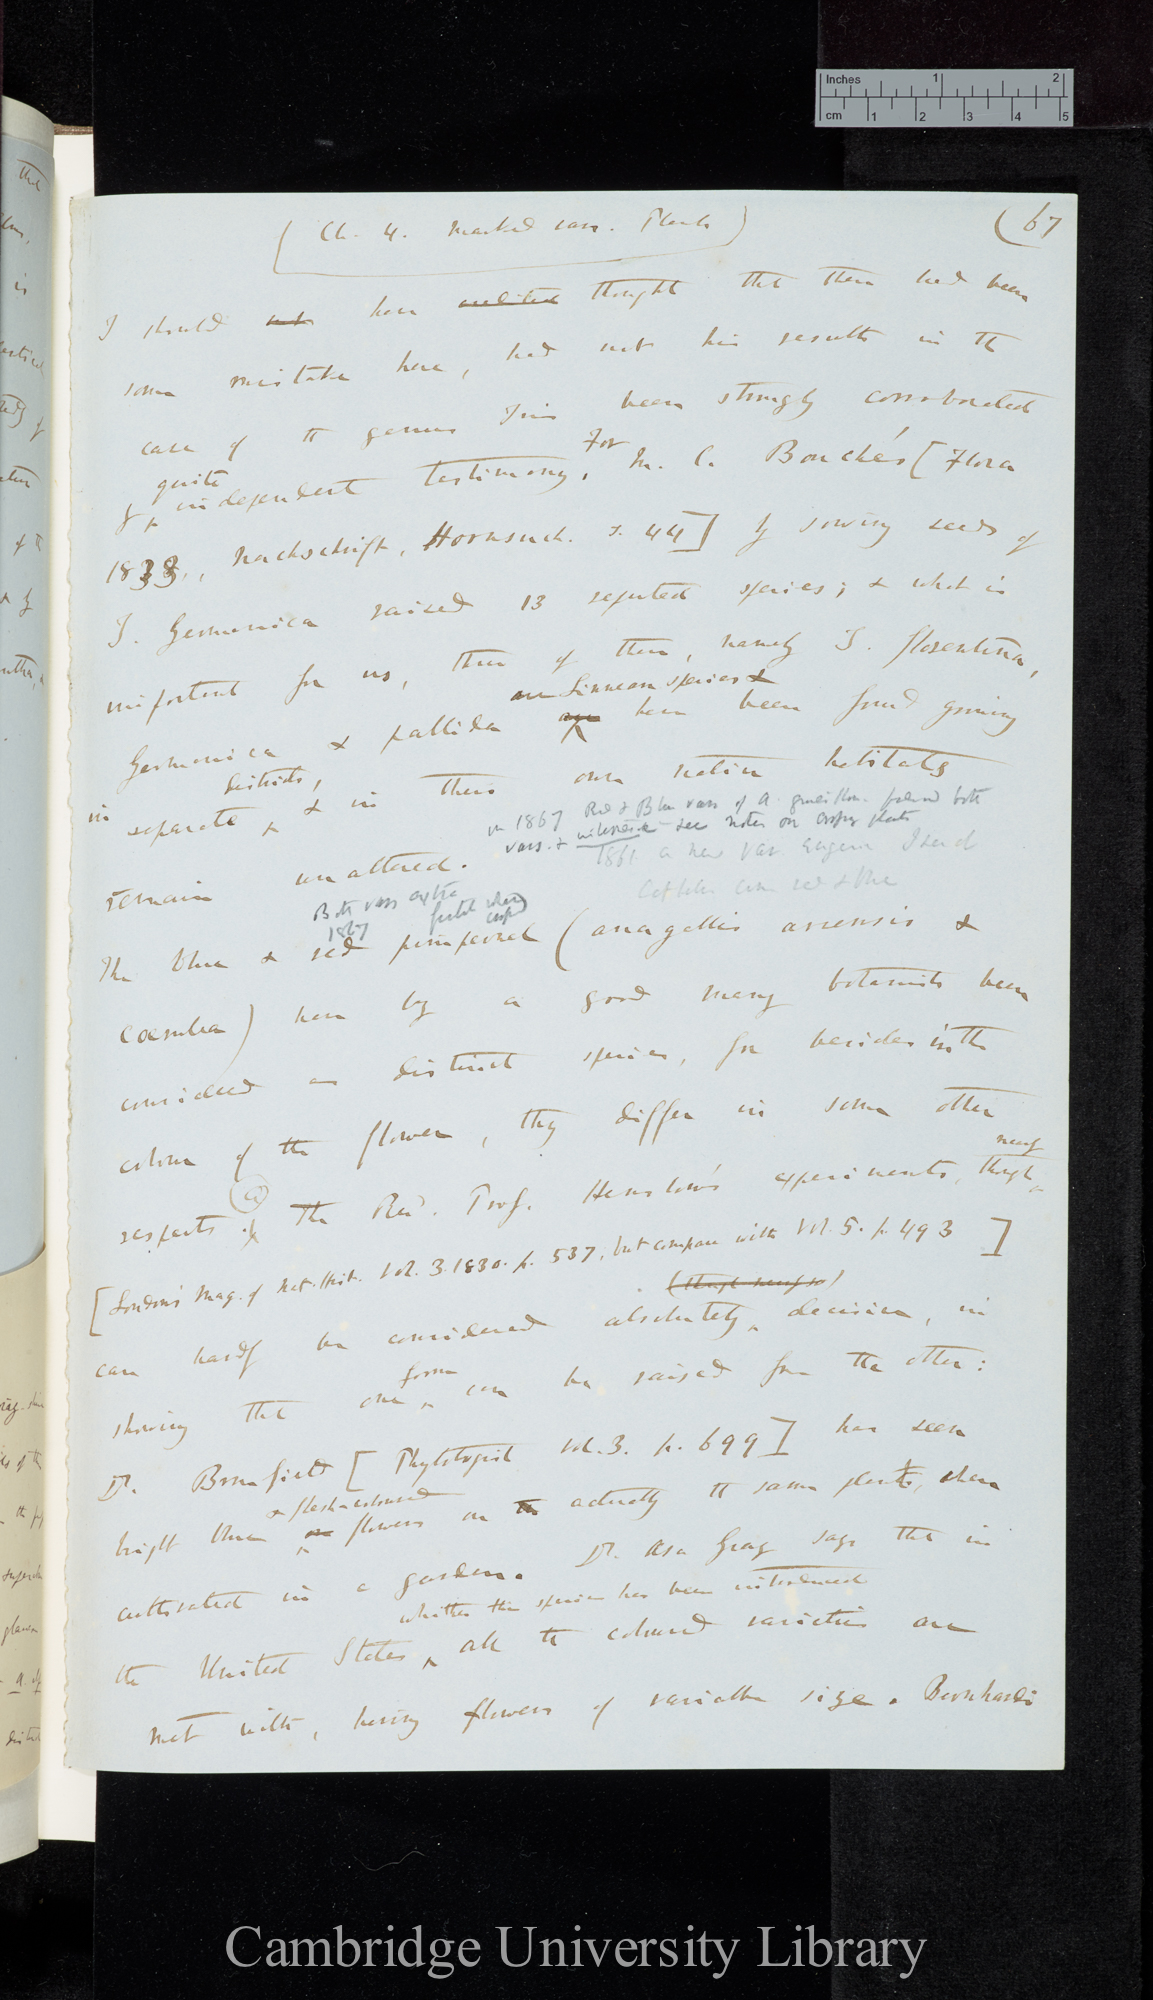 (Ch. 4. Marked vars. Plants)
(67
I should not have credited thought that there had been
some mistake here, had not his results in the
case of the genus Iris been strongly corroborated
by quite independent testimony, For M. C. Bouché's [Flora
1833, Nachschrift, Hornsuch. s. 44] by sowing seeds of
I. Germanica raised 13 reputed species; & what is
important for us, three of them, namely I. florentina,
are Linnean species &
Germanica & pallida have been found growing
districts,
in separate & in their own native habitats
remain unaltered.
in 1867 Red & Blue vars of A. produced both
vars. & see notes on crossing plants
1861 a new var.
red & blue
Both vars
1867
The blue & red pimpernel (anagallis arvensis &
coerulea) have by a good many botanists been
considered as distinct species, for besides in the
colour of the flower, they differ in some other
nearly
respects. (a) The Revd. Prof. Henslow's experiments, though
[Loudon's Mag. of Nat. Hist. Vol. 3. 1830. p. 537, but compare with Vol. 5. p. 493]
(though nearly so)
can hardly be considered absolutely decisive, in
form
showing that one can be raised from the other:
Dr. Bromfield [Phytologist vol. 3. p. 699] has seen
& flesh-coloured
bright blue flowers on the actually the same plant, when
cultivated in a garden. Dr. Asa Gray says that in
whither this species has been introduced
the United States, all the coloured varieties are
met with, having flowers of variable size. Bernhardi
Inches 1 2
cm 1 2 3 4 5
Cambridge University Library